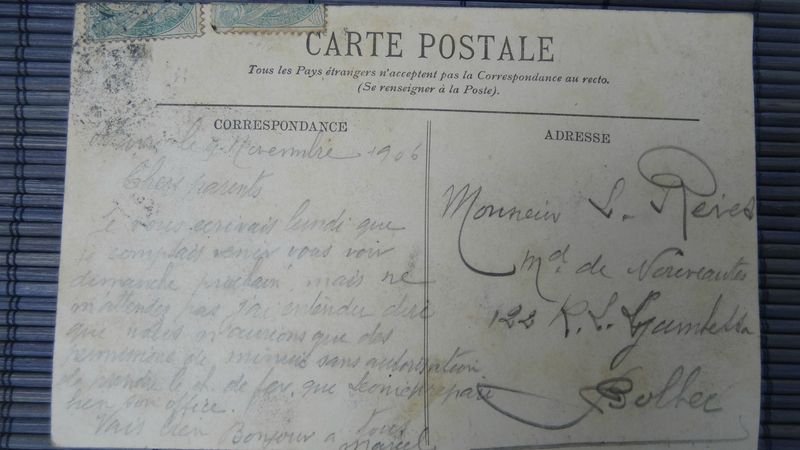 CARTE POSTALE
Tous les Pays étrangers n'acceptent pas la Correspondance au recto.
(Se renseigner à la Poste).
CORRESPONDANCE
le 7 Novembre 1906
Chers parents
Je vous ecrivais lundi que
je comptais venir vous voir
dimanche prochain mais ne
m'attendez pas j'ai entendu dire
que nous n'aurions que des
permissions de minuit sans autorisation
de prendre le ch. de fer, que
bien son office.
Vais bien Bonjour a tous
Marcel
ADRESSE
Monsieur L.
Md. de Nouveautés
122 R. L. Gambetta
Bolbec